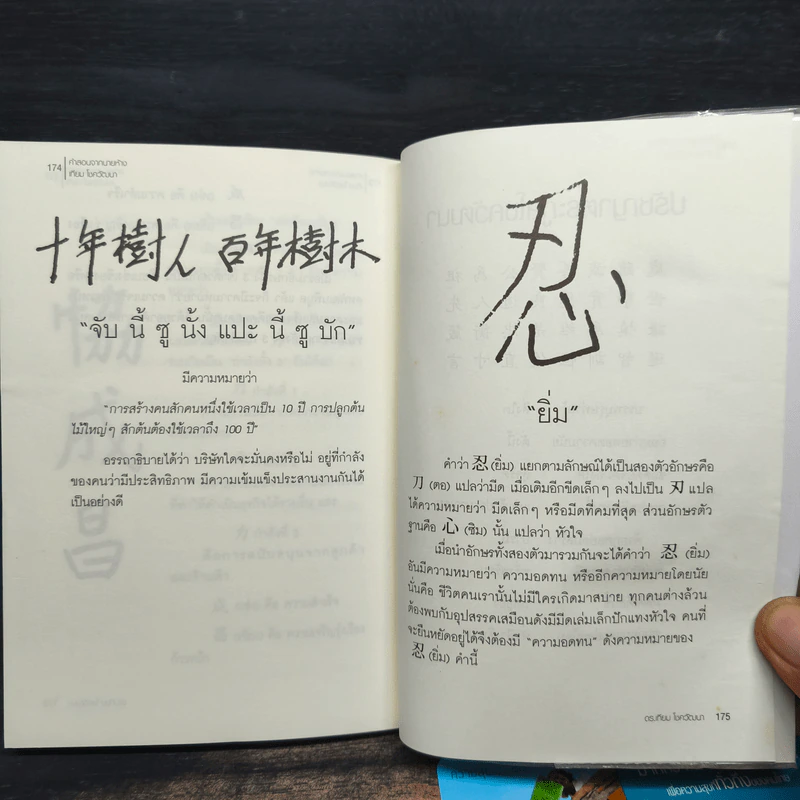 174
คำสอนจากนายห้าง
เทียม โชควัฒนา
十年樹人 百年樹木
“จับ นี้ ซู นั้ง แปะ นี้ ซู บัก”
มีความหมายว่า
“การสร้างคนสักคนหนึ่งใช้เวลาเป็น 10 ปี การปลูกต้น
ไม้ใหญ่ๆ สักต้นต้องใช้เวลาถึง 100 ปี”
อรรถาธิบายได้ว่า บริษัทใดจะมั่นคงหรือไม่ อยู่ที่กำลัง
ของคนว่ามีประสิทธิภาพ มีความเข้มแข็งประสานงานกันได้
เป็นอย่างดี
忍
“ยิ่ม”
คำว่า 忍 (ยิ่ม) แยกตามลักษณ์ได้เป็นสองตัวอักษรคือ
刀 (ตอ) แปลว่ามีด เมื่อเติมอีกขีดเล็กๆ ลงไปเป็น 刃 แปล
ได้ความหมายว่า มีดเล็กๆ หรือมีดที่คมที่สุด ส่วนอักษรตัว
ฐานคือ 心 (ซิม) นั้น แปลว่า หัวใจ
เมื่อนำอักษรทั้งสองตัวมารวมกันจะได้คำว่า 忍 (ยิ่ม)
อันมีความหมายว่า ความอดทน หรืออีกความหมายโดยนัย
นั่นคือ ชีวิตคนเรานั้นไม่มีใครเกิดมาสบาย ทุกคนต่างล้วน
ต้องพบกับอุปสรรคเสมือนดังมีมีดเล่มเล็กปักแทงหัวใจ คนที่
จะยืนหยัดอยู่ได้จึงต้องมี “ความอดทน” ดังความหมายของ
忍 (ยิ่ม) คำนี้
ดร.เทียม โชควัฒนา 175